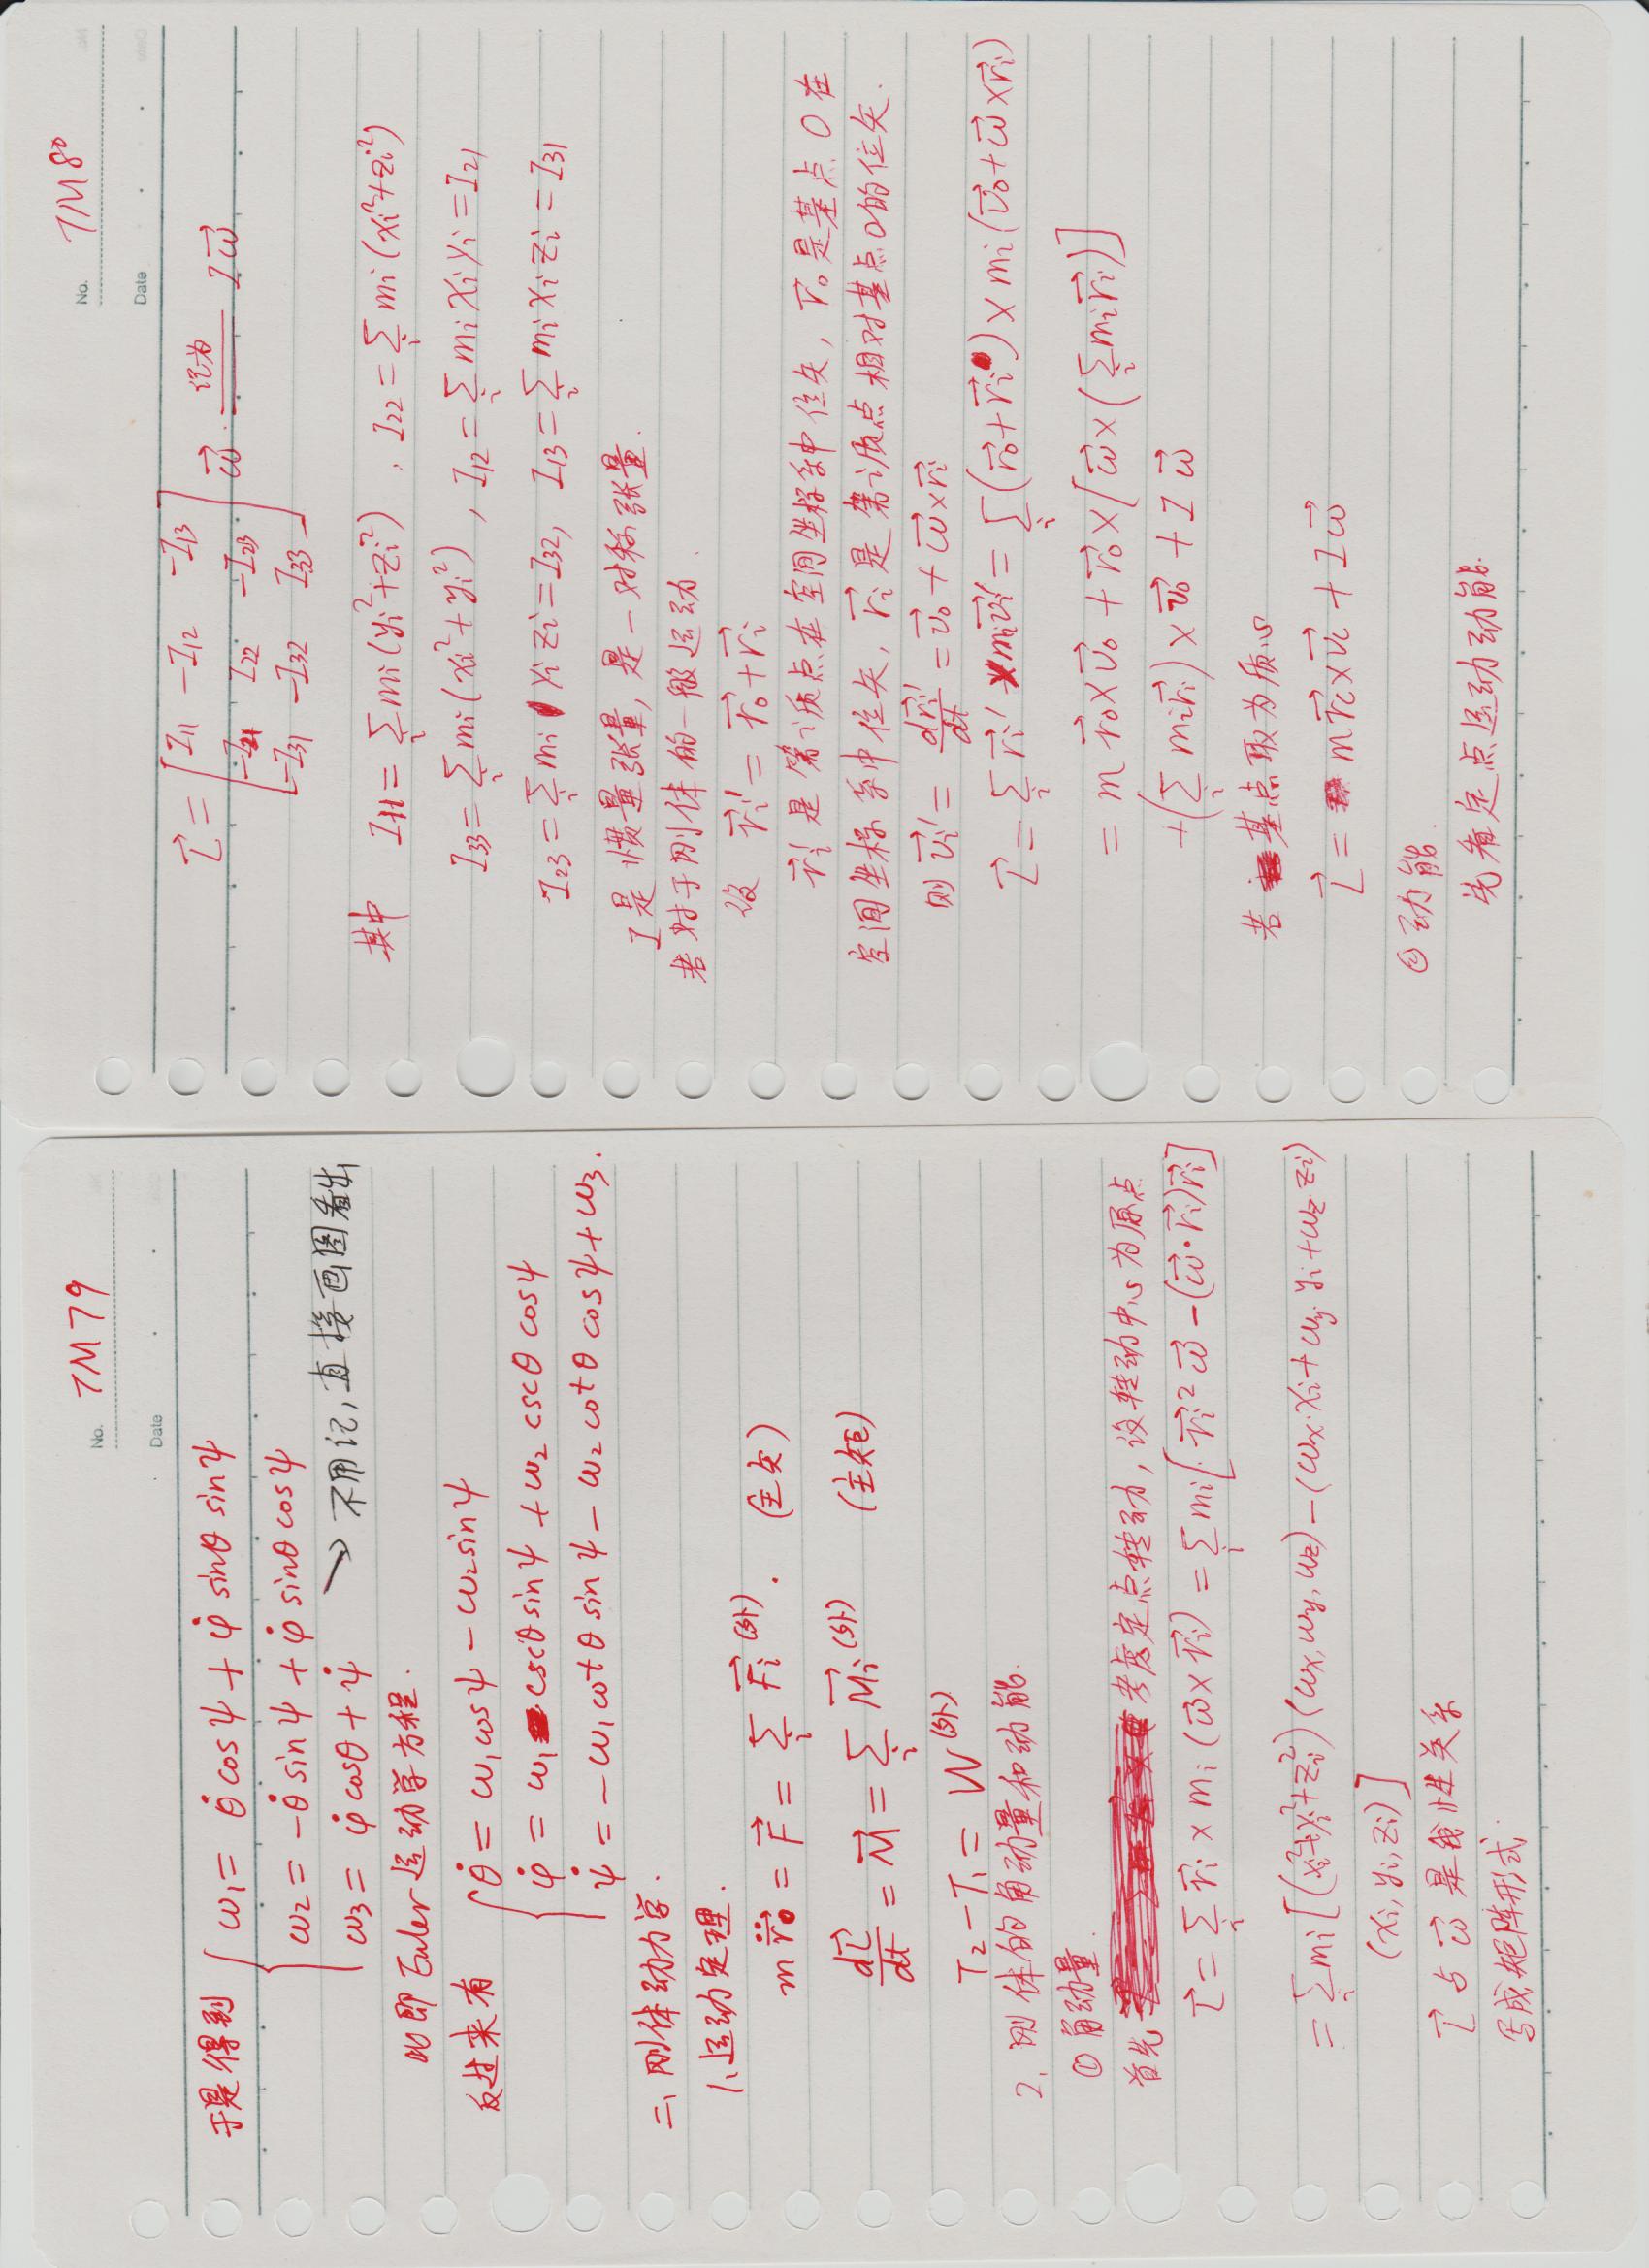 No. TM79
Date
于是得到 { ω₁ = θ̇ cosψ + φ̇ sinθ sinψ
ω₂ = -θ̇ sinψ + φ̇ sinθ cosψ
ω₃ = φ̇ cosθ + ψ̇ ↘ 不用记, 直接画图看出
此即 Euler 运动学方程.
反过来有 { θ̇ = ω₁cosψ - ω₂sinψ
φ̇ = ω₁ cscθ sinψ + ω₂ cscθ cosψ
ψ̇ = -ω₁cotθ sinψ - ω₂ cotθ cosψ + ω₃.
二、刚体动力学.
1、运动定理.
m r̈₀⃗ = F⃗ = Σᵢ F⃗ᵢ⁽外⁾. (主矢)
dL⃗/dt = M⃗ = Σᵢ M⃗ᵢ⁽外⁾ (主矩)
T₂ - T₁ = W⁽外⁾
2、刚体的角动量和动能.
① 角动量.
首先 考虑定点转动, 设转动中心为原点
L⃗ = Σᵢ r⃗ᵢ × mᵢ (ω⃗ × r⃗ᵢ) = Σᵢ mᵢ [r⃗ᵢ² ω⃗ - (ω⃗·r⃗ᵢ) r⃗ᵢ]
= Σᵢ mᵢ [(xᵢ²+yᵢ²+zᵢ²) (ωx, ωy, ωz) - (ωx·xᵢ + ωy·yᵢ + ωz·zᵢ)
(xᵢ, yᵢ, zᵢ)]
L⃗ 与 ω⃗ 是线性关系
写成矩阵形式
No. TM80
Date
L⃗ = [ I₁₁ -I₁₂ -I₁₃
-I₂₁ I₂₂ -I₂₃ ] ω⃗ 记为 Iω⃗
-I₃₁ -I₃₂ I₃₃
其中 I₁₁ = Σᵢ mᵢ(yᵢ²+zᵢ²), I₂₂ = Σᵢ mᵢ(xᵢ²+zᵢ²)
I₃₃ = Σᵢ mᵢ(xᵢ²+yᵢ²), I₁₂ = Σᵢ mᵢ xᵢ yᵢ = I₂₁
I₂₃ = Σᵢ mᵢ yᵢ zᵢ = I₃₂, I₁₃ = Σᵢ mᵢ xᵢ zᵢ = I₃₁
I 是惯量张量, 是一对称张量.
若对于刚体的一般运动.
设 r⃗ᵢ' = r⃗₀ + r⃗ᵢ
r⃗ᵢ' 是第i质点在空间坐标系中位矢, r⃗₀是基点O在
空间坐标系中位矢, r⃗ᵢ 是第i质点相对基点O的位矢.
则 v⃗ᵢ' = dr⃗ᵢ'/dt = v⃗₀ + ω⃗ × r⃗ᵢ
L⃗ = Σᵢ r⃗ᵢ' × mᵢv⃗ᵢ' = Σᵢ (r⃗₀ + r⃗ᵢ) × mᵢ (v⃗₀ + ω⃗ × r⃗ᵢ)
= m r⃗₀ × v⃗₀ + r⃗₀ × [ω⃗ × (Σᵢ mᵢr⃗ᵢ)]
+ (Σᵢ mᵢr⃗ᵢ) × v⃗₀ + I ω⃗
若 基点取为质心
L⃗ = m r⃗c × v⃗c + Iω⃗
② 动能.
先看定点运动动能.